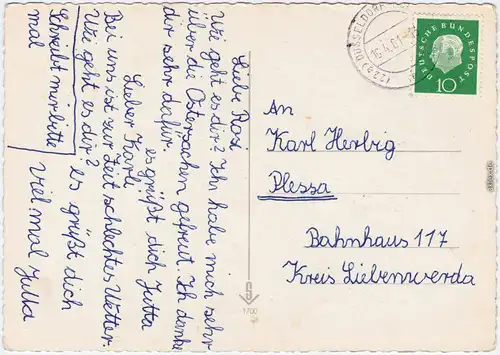 Liebe Rosi
Wie geht es dir? Ich habe mich sehr
über die Ostersachen gefreut. Ich danke
dir sehr dafür.
es grüßt dich Jutta
Lieber Karli
Wie geht es dir?
Bei uns ist zur Zeit schlechtes Wetter.
Schreibt mir bitte
mal
es grüßt dich
viel mal Jutta
(22a) DÜSSELDORF
16.4.61
DEUTSCHE BUNDESPOST
10
An
Karl Herbig
Plessa
Bahnhaus 117
Kreis Liebenwerda
S
1700